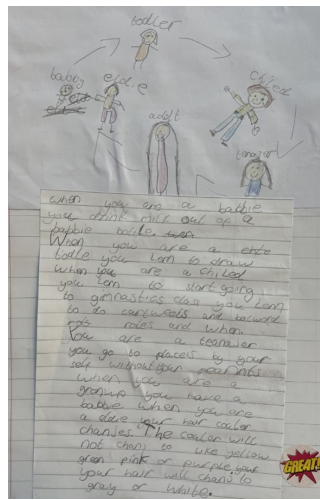 todler
babby
eldie
chiled
addlt
tenajer
when you are a babbie
you drink milk out of a
babbie botile.
When you are a
todle you lern to draw
when you are a chiled
you lern to start going
to gimnastics class you lern
to do cartweels and backword
roles and when
you are a teanajer
you go to placeis by your
self without your pearints
when you are a
gronup you have a
babbie when you are
a eldie your hair couler
chanses. The couler will
not chans to like yellow
green pink or purple. your
your hair will chans to
gray or white.
GREAT!